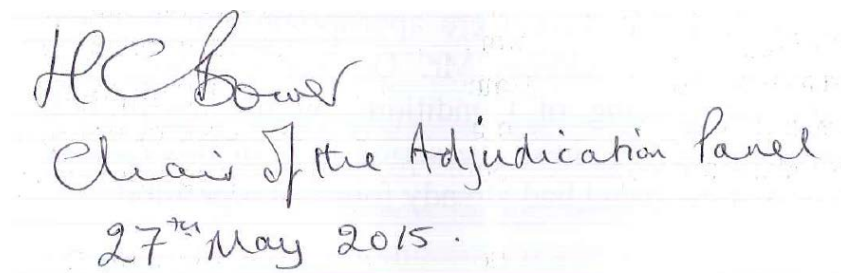 HC Bower
Chair of the Adjudication Panel
27th May 2015.